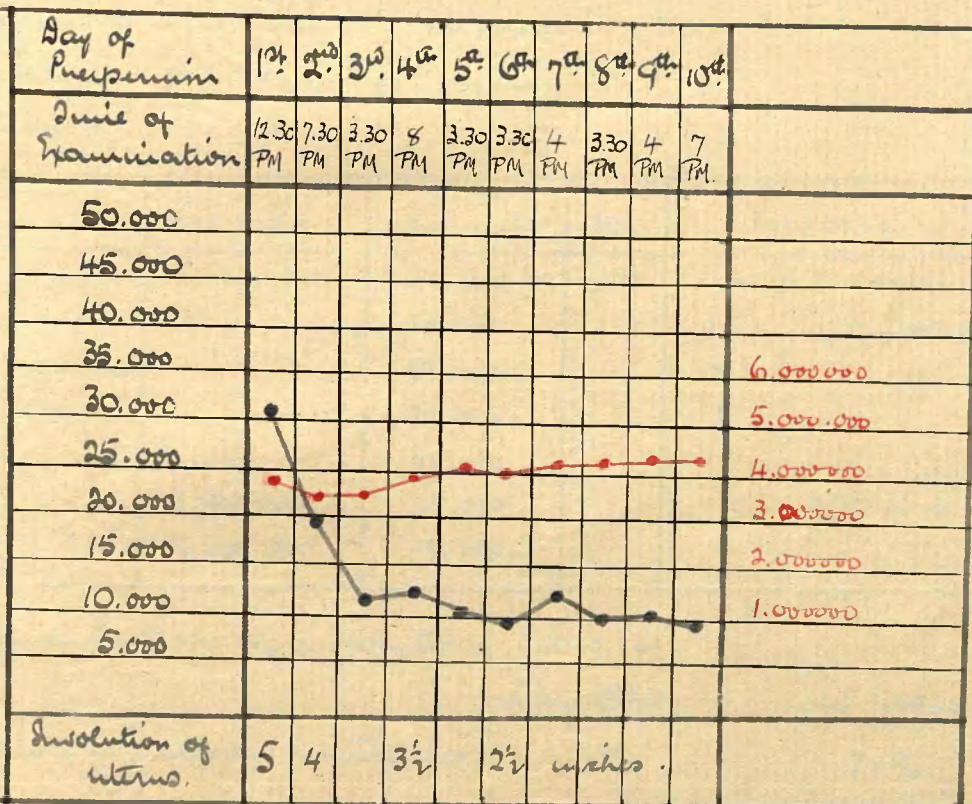 Day of
Puerperium 1st 2nd 3rd 4th 5th 6th 7th 8th 9th 10th
Time of
Examination 12.30 PM 7.30 PM 3.30 PM 8 PM 3.30 PM 3.30 PM 4 PM 3.30 PM 4 PM 7 PM.
50.000
45.000
40.000
35.000 6.000000
30.000 5.000.000
25.000 4.000000
20.000 3.000000
15.000 2.000000
10.000 1.000000
5.000
Involution of
uterus. 5 4 3½ 2½ inches.